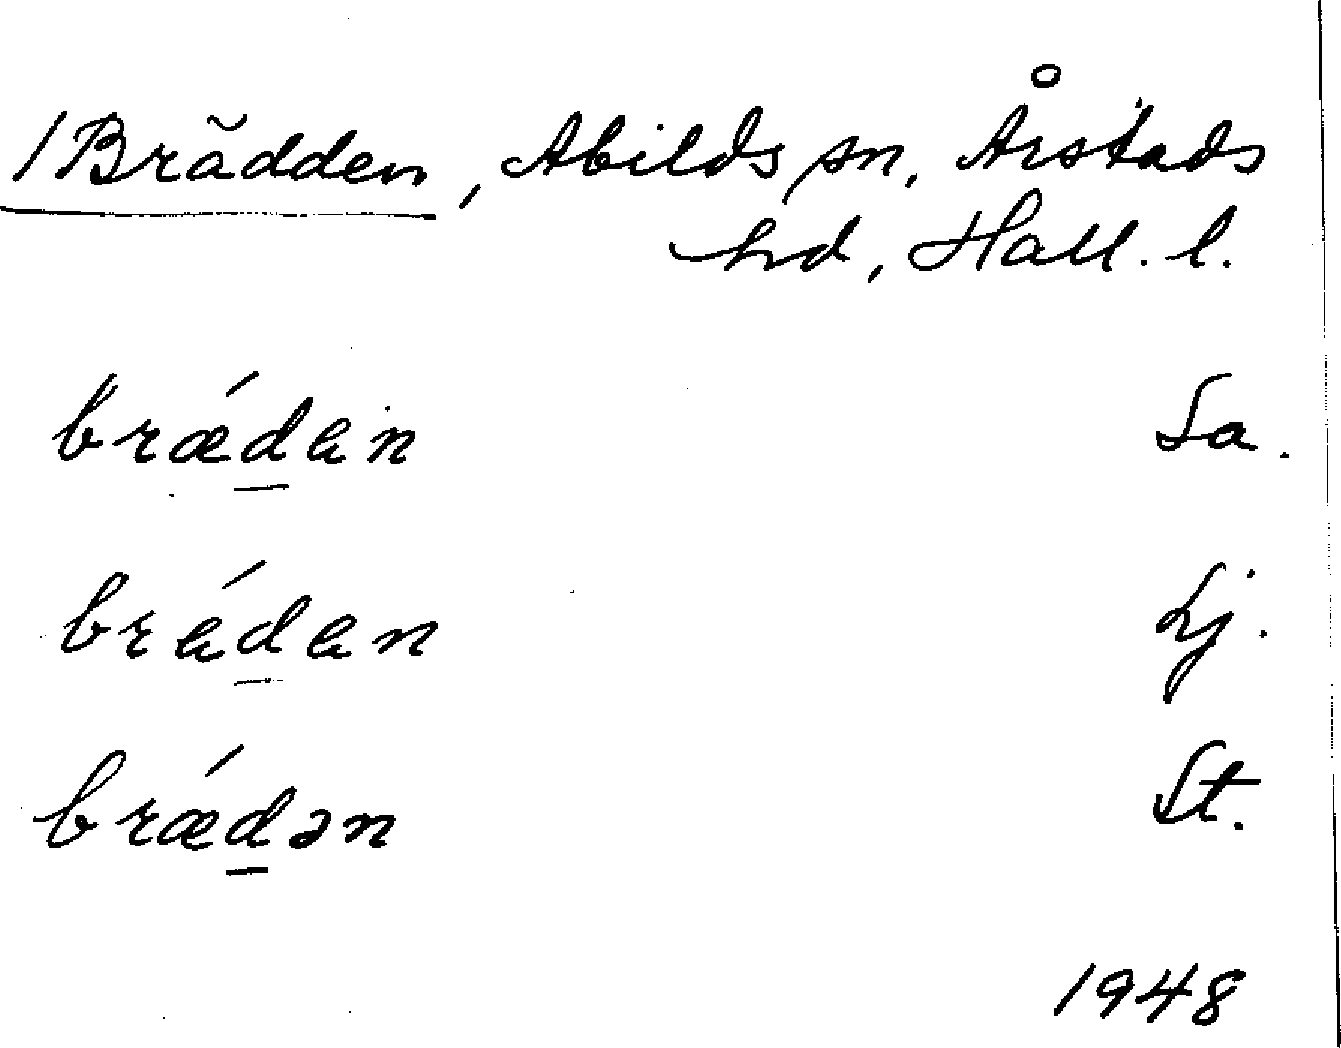 /Brädden, Abilds sn, Årstads
hd, Hall. l.
brǽdan Sa.
brádan Lj.
brǽdən St.
1948